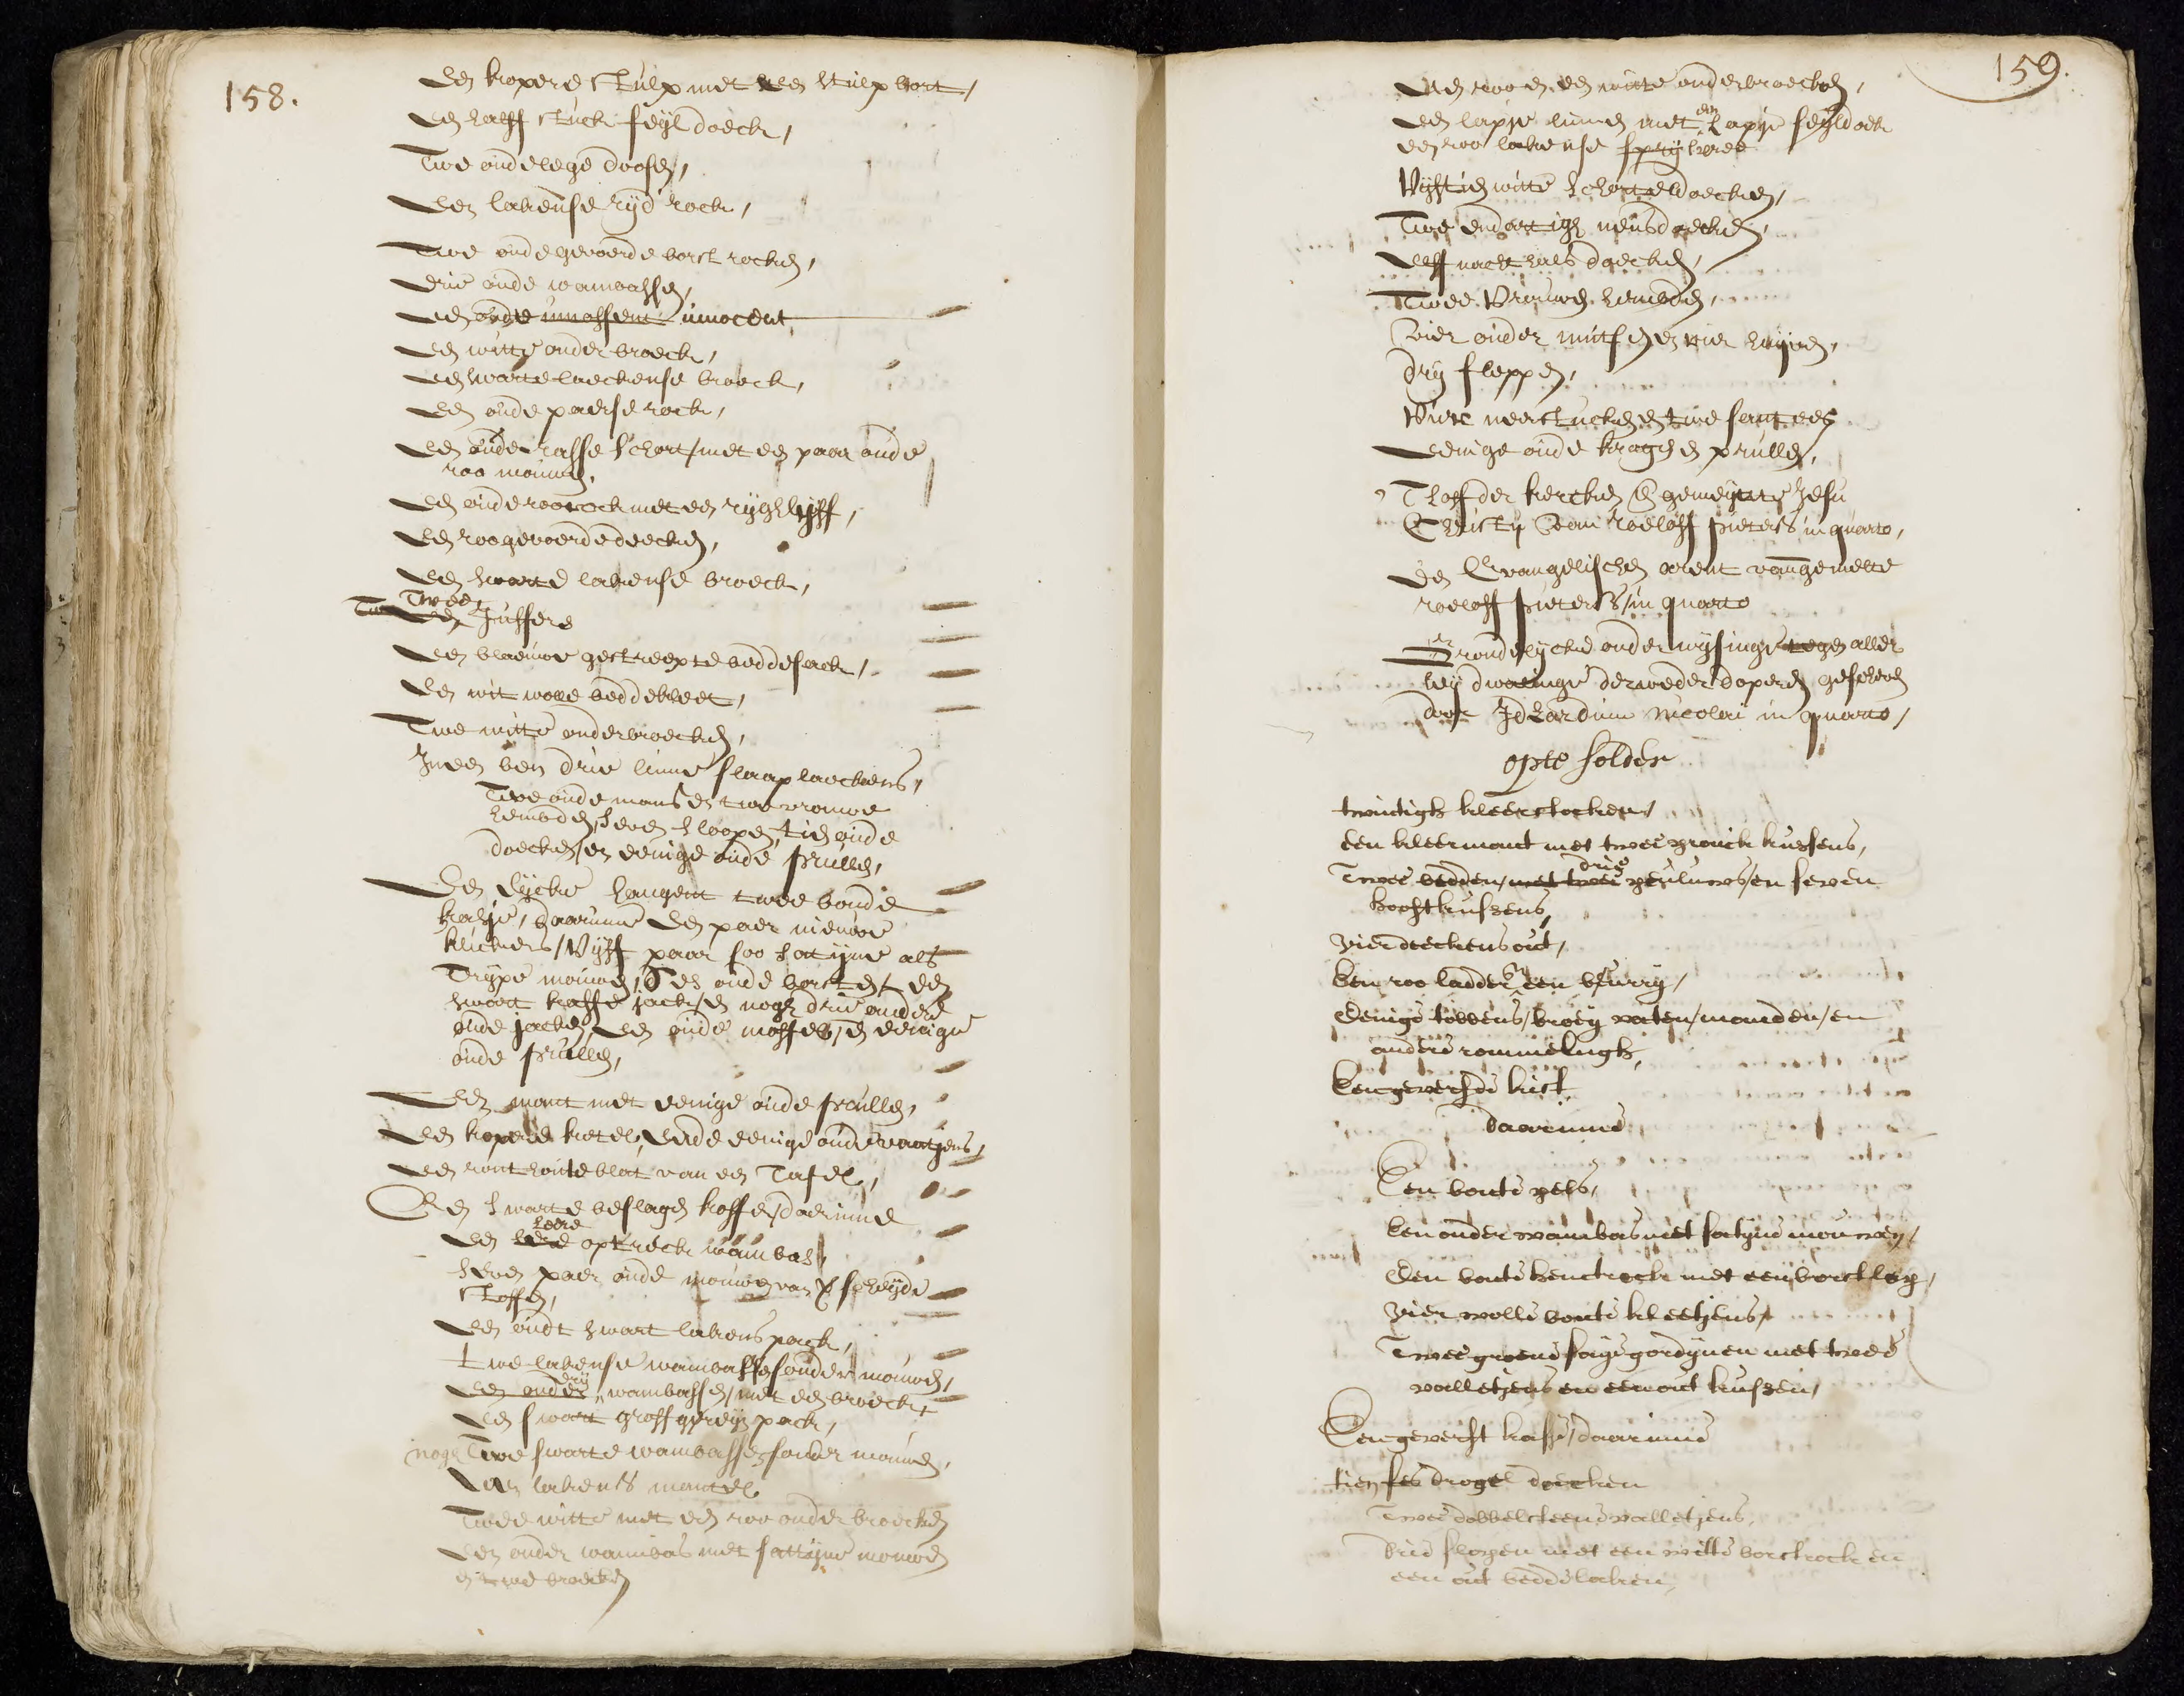 158.
Een kopere stulp met een stulp bort,
Een halff stuck seyl doeck,
Twe oude lege doosen,
Een lakense ryd rock,
Twe oude gevoerde borst rocken,
drie oude wambassen,
Een innocent,
Een witte onder broeck,
Een swarte laeckense broeck,
Een oude paerse rock,
Een oude rasse schort, met een paar oude
roo mouwen,
Een oude roo rock met een ryghlyff,
Een roo gevoerde deecken,
Een swarte lakense broeck,
Twee
Juffers
Een blaeuwe gestreepte beddesack,
Een wit wolle beddekleet,
Twe witte onderbroecken,
In een ben drie linne slaaplaeckens,
Twe oude mans en twe vrouwe
hemden, seven sloopen, tien oude
doecken, en eenige oude prullen,
Een hangent twee bonde
daarinne Een paer nieuwe
Vyff paar soo satyne als
Trype mouwen, Ses oude borsten, Een
swart kaffa jack, en nogh drie andere
oude jacken, Een oude moffel, en eenige
oude prullen,
Een mant met eenige oude prullen,
Een kopere ketel, Ende eenige oude vaatjens,
Een ront houte blat van een Tafel,
Een swarte beslagen koffer, daerinne
leere
Een optreck wambas,
seven paer oude mouwen van verscheyde
stoffen,
Een oudt swart lakens pack,
twe lakense wambassen sonder mouwen,
dry
Een wambassen, met een broeck,
Een swart groffgreyn pack,
nogh Twe swarte wambassen sonder mouwen,
Een lakens mantel
Twee witte met een roo onder broecken
Een onder wambas met sattyne mouwen
en twee broecken
159.
Een roo en een witte onderbroecken,
een
Een lapje linnen met lapje seyldoek
een roo lakense
Vyftien witte schorteldoecken,
Twe endartigh neusdoecken,
Elff nacht hals doecken,
Twee Vrouwen hemden,
Vier onder mutsen en vier huyven,
Dry fleppen,
Vier neerstucken en twe
eenige oude kragen en prullen,
T hoff der kercken en gemeynte Jesu
Christy van Roeloff Pieters in quarto,
De Evangelischen arent van gemelte
roeloff Pieters, in quarto
Grondelycke onderwysinge tegen aller
ley dwalinge der wederdoperen geschreven
door Idzardum Nicolai in quarto,
opte solder
twintigh kleerstocken,
een kleermant met twee pronck kussens,
drie
Twee bedden, peuluwe, en seven
hooftkussens,
vier deeckens out,
Een roo ladder en een burry,
Eenige tobbens, broey vaten, manden, en
andere rommelingh,
Een geverfde kist
Daarinne
Een bonte pels,
Een onder wambas met satyne mouwen,
Een bonte hemtrock met een borstlap,
vier wolle bonte kleetjens,
Twee groene saye gordynen met twee
valletjens en een out kussen,
Een geverft kasse, daarinne
tien ses drogel doecken
Twee dobbelsteene valletjens,
Drie slopen met een witte borstrock en
een out beddelaken,